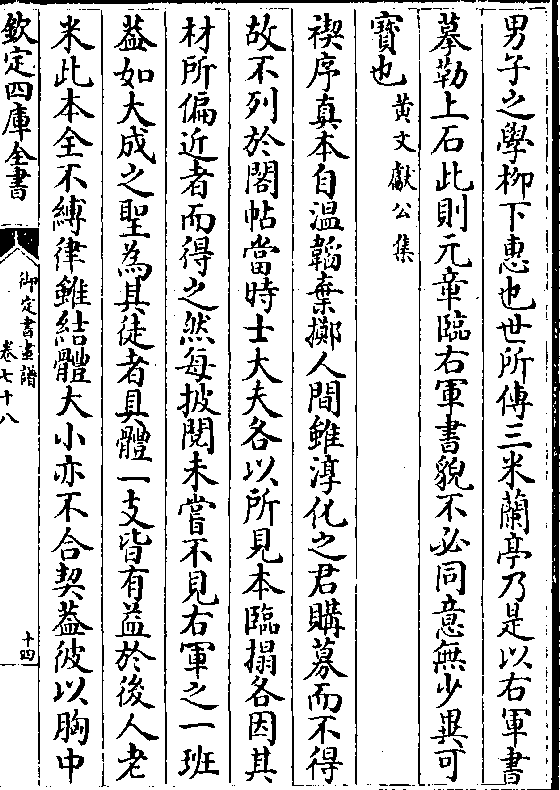 男子之學柳下惠也世所傳三米蘭亭乃是以右軍書
摹勒上石此則元章臨右軍書貌不必同意無少異可
寳也黄文獻公集
禊序真本自温韜棄擲人間雖淳化之君購募而不得
故不列於閣帖當時士大夫各以所見本臨搨各因其
材所偏近者而得之然每披閲未嘗不見右軍之一班
葢如大成之聖為其徒者具體一支皆有益於後人老
米此本全不縛律雖結體大小亦不合契葢彼以胸中
欽定四庫全書
御定書畫譜
卷七十八
十四